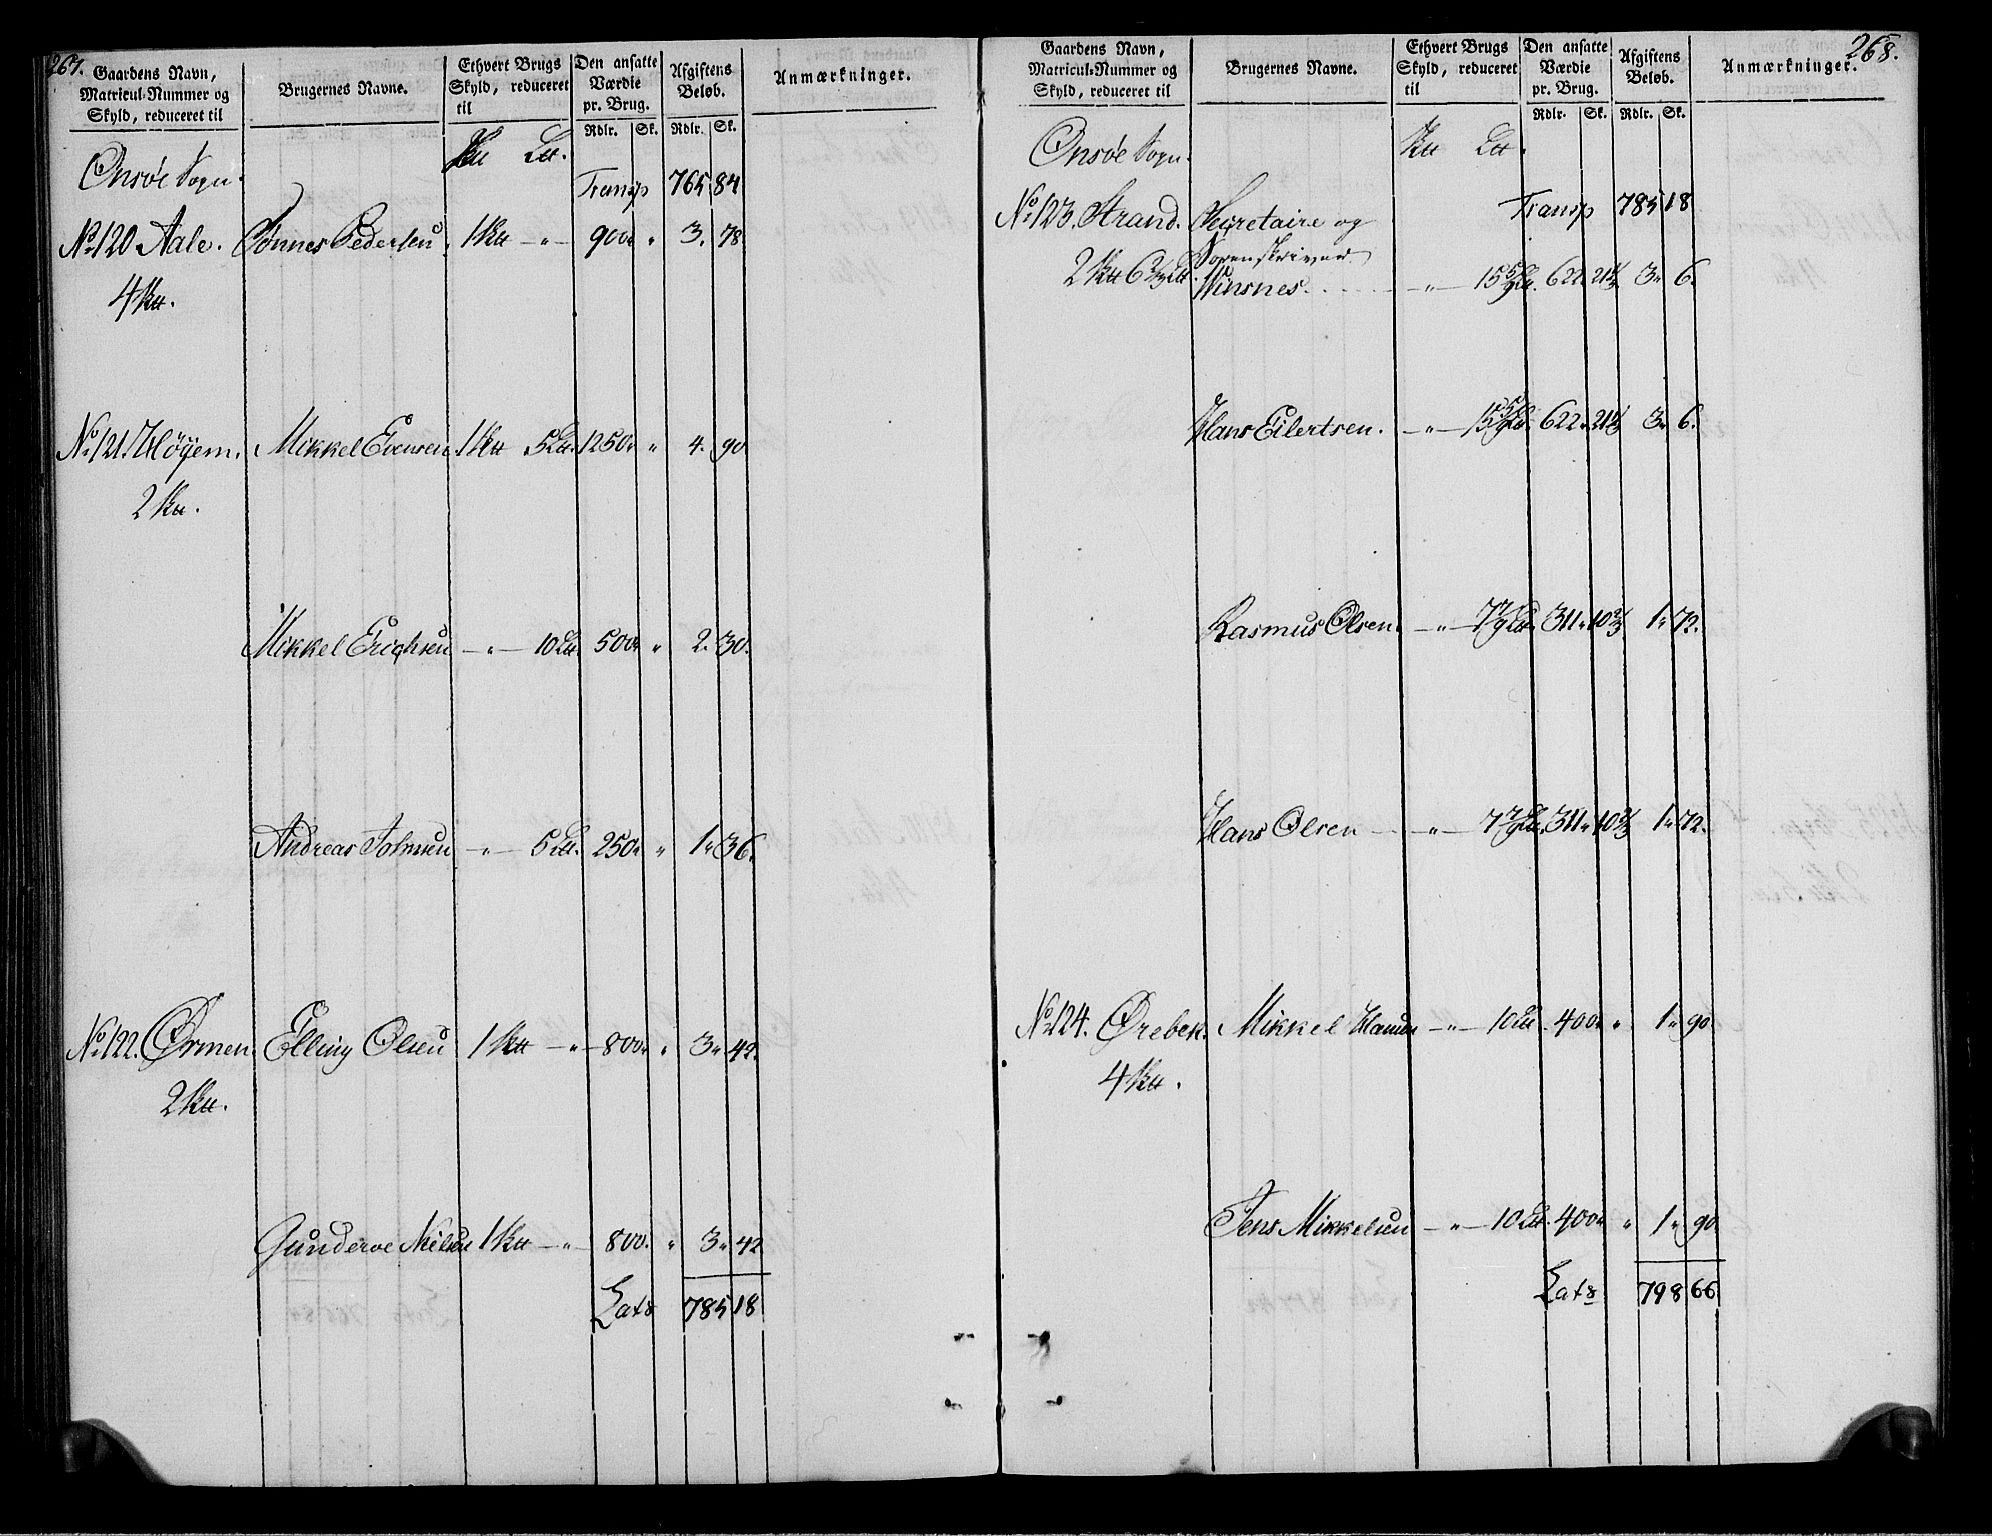 267.
Gaardens Navn, Matricul-Nummer og Skyld, reduceret til
Brugernes Navne.
Ethvert Brugs Skyld, reduceret til
Den ansatte Værdie pr. Brug.
Afgiftens Beløb.
Anmærkninger.
Rdlr. Sk. Rdlr. Sk.
Onsøe Sogn. Transp 765 84
No. 120 Aale. Tønnes Pedersen. 1 — „ — 900 „ 3. 78.
4
No. 121. Høyem. Mikkel Evensen 1 5 1250 „ 4. 90
2
Mikkel Erichsen — „ — 10 500 „ 2. 30.
Andreas Johnsen — „ — 5 250 „ 1 „ 36.
No. 122. Ørmen. Elling Olsen 1 — „ — 800 „ 3 „ 42.
2
Gunderoe Nielsen 1 — „ — 800. „ 3 „ 42
Lats 785 18
268.
Gaardens Navn, Matricul-Nummer og Skyld, reduceret til
Brugernes Navne.
Ethvert Brugs Skyld, reduceret til
Den ansatte Værdie pr. Brug.
Afgiftens Beløb.
Anmærkninger.
Rdlr. Sk. Rdlr. Sk.
Onsøe Sogn.
Transp 785 18
No. 123. Strand. Secretaire og
Sorenskriver
2 6 2/3 Winsnes. — „ — 15 5/9 622. 21 1/3 3 „ 6.
Hans Eilertsen. — „ — 15 5/9 622 „ 21 1/3 3 „ 6.
Rasmus Olsen. — „ — 7 7/9 311 „ 10 2/3 1 „ 72.
Hans Olsen — „ — 7 7/9 311 „ 10 2/3 1 „ 72.
No. 124. Ørebek. Mikkel Hansen — „ — 10 400 „ 1 „ 90
4
Jens Mikkelsen — „ — 10 400 „ 1 „ 90
Lats 798 66